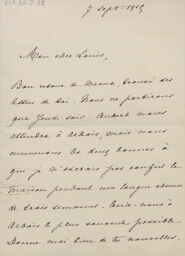 7 sept. 1915
Mon cher Louis,
Bon retour de Meaux, trouvé des
lettres de toi. Nous ne partirons
que Jeudi soir. André nous
attendra à Arbois, mais nous
emmenons les deux bonnes à
qui je n'aurais pas confié la
maison pendant une longue absence
de trois semaines. Écris-nous à
Arbois le plus souvent possible
Donne moi bien de tes nouvelles.